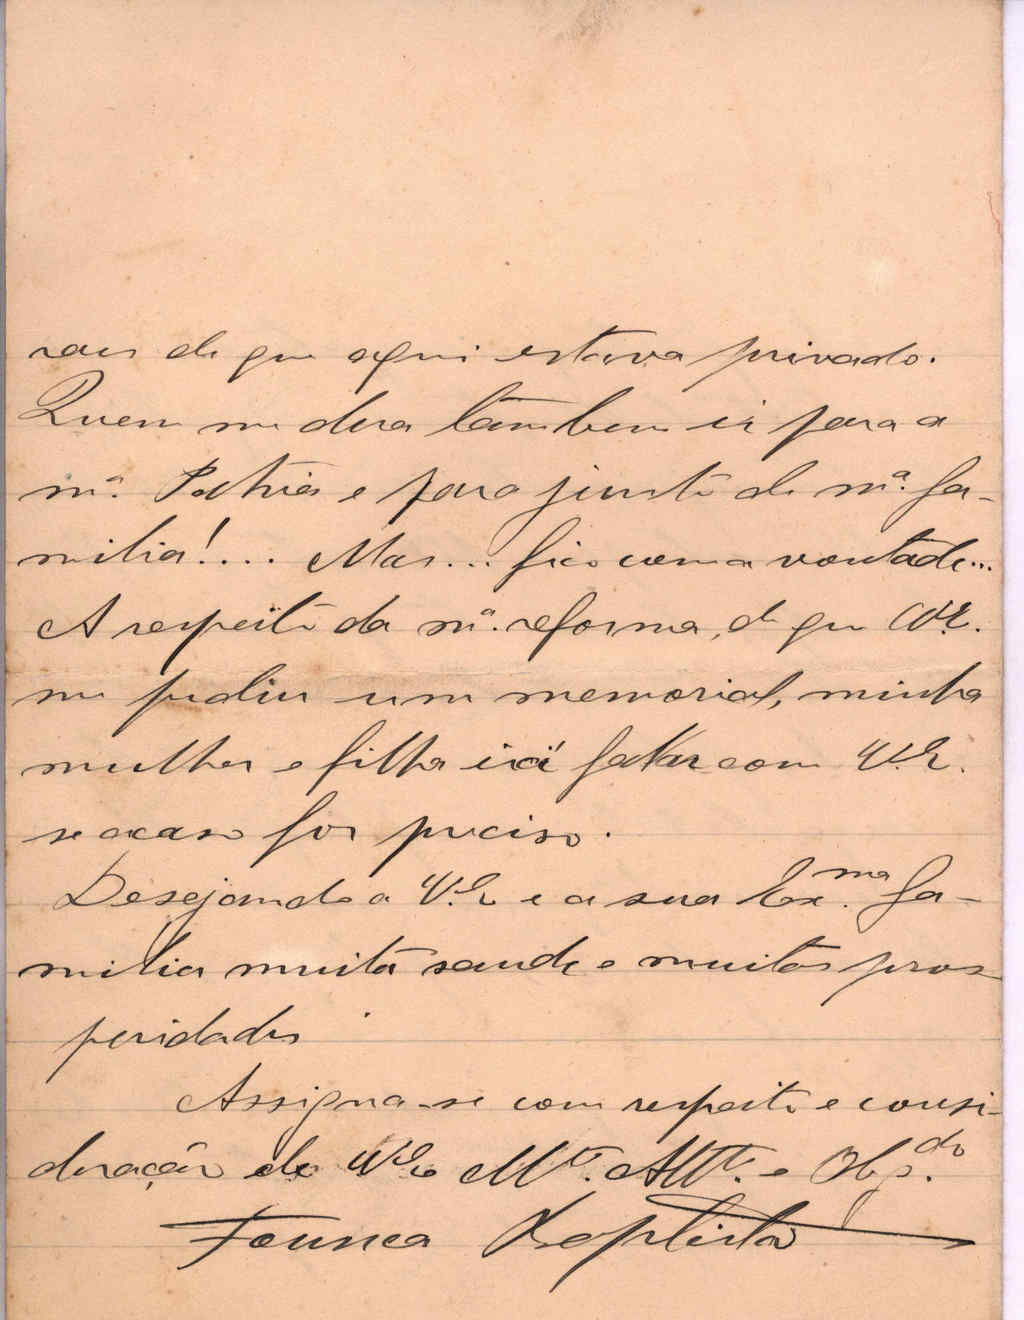 raes de que aqui estava privado.
Quem me dera tambem ir para a
mª. Patria e para junto de mª. fa-
milia!... Mas... fico com a vontade...
A respeito da mª. reforma, de que V.E.
me pediu um memorial, minha
mulher e filha irá fallar com V.E.
se acaso for preciso.
Desejando a V.E e a sua Exma. fa-
milia muita saude e muitas pros
peridades.
Assigna-se com respeito e consi-
deração de V.E. Mto. Atto. e Obgdo.
Fonseca Baptista